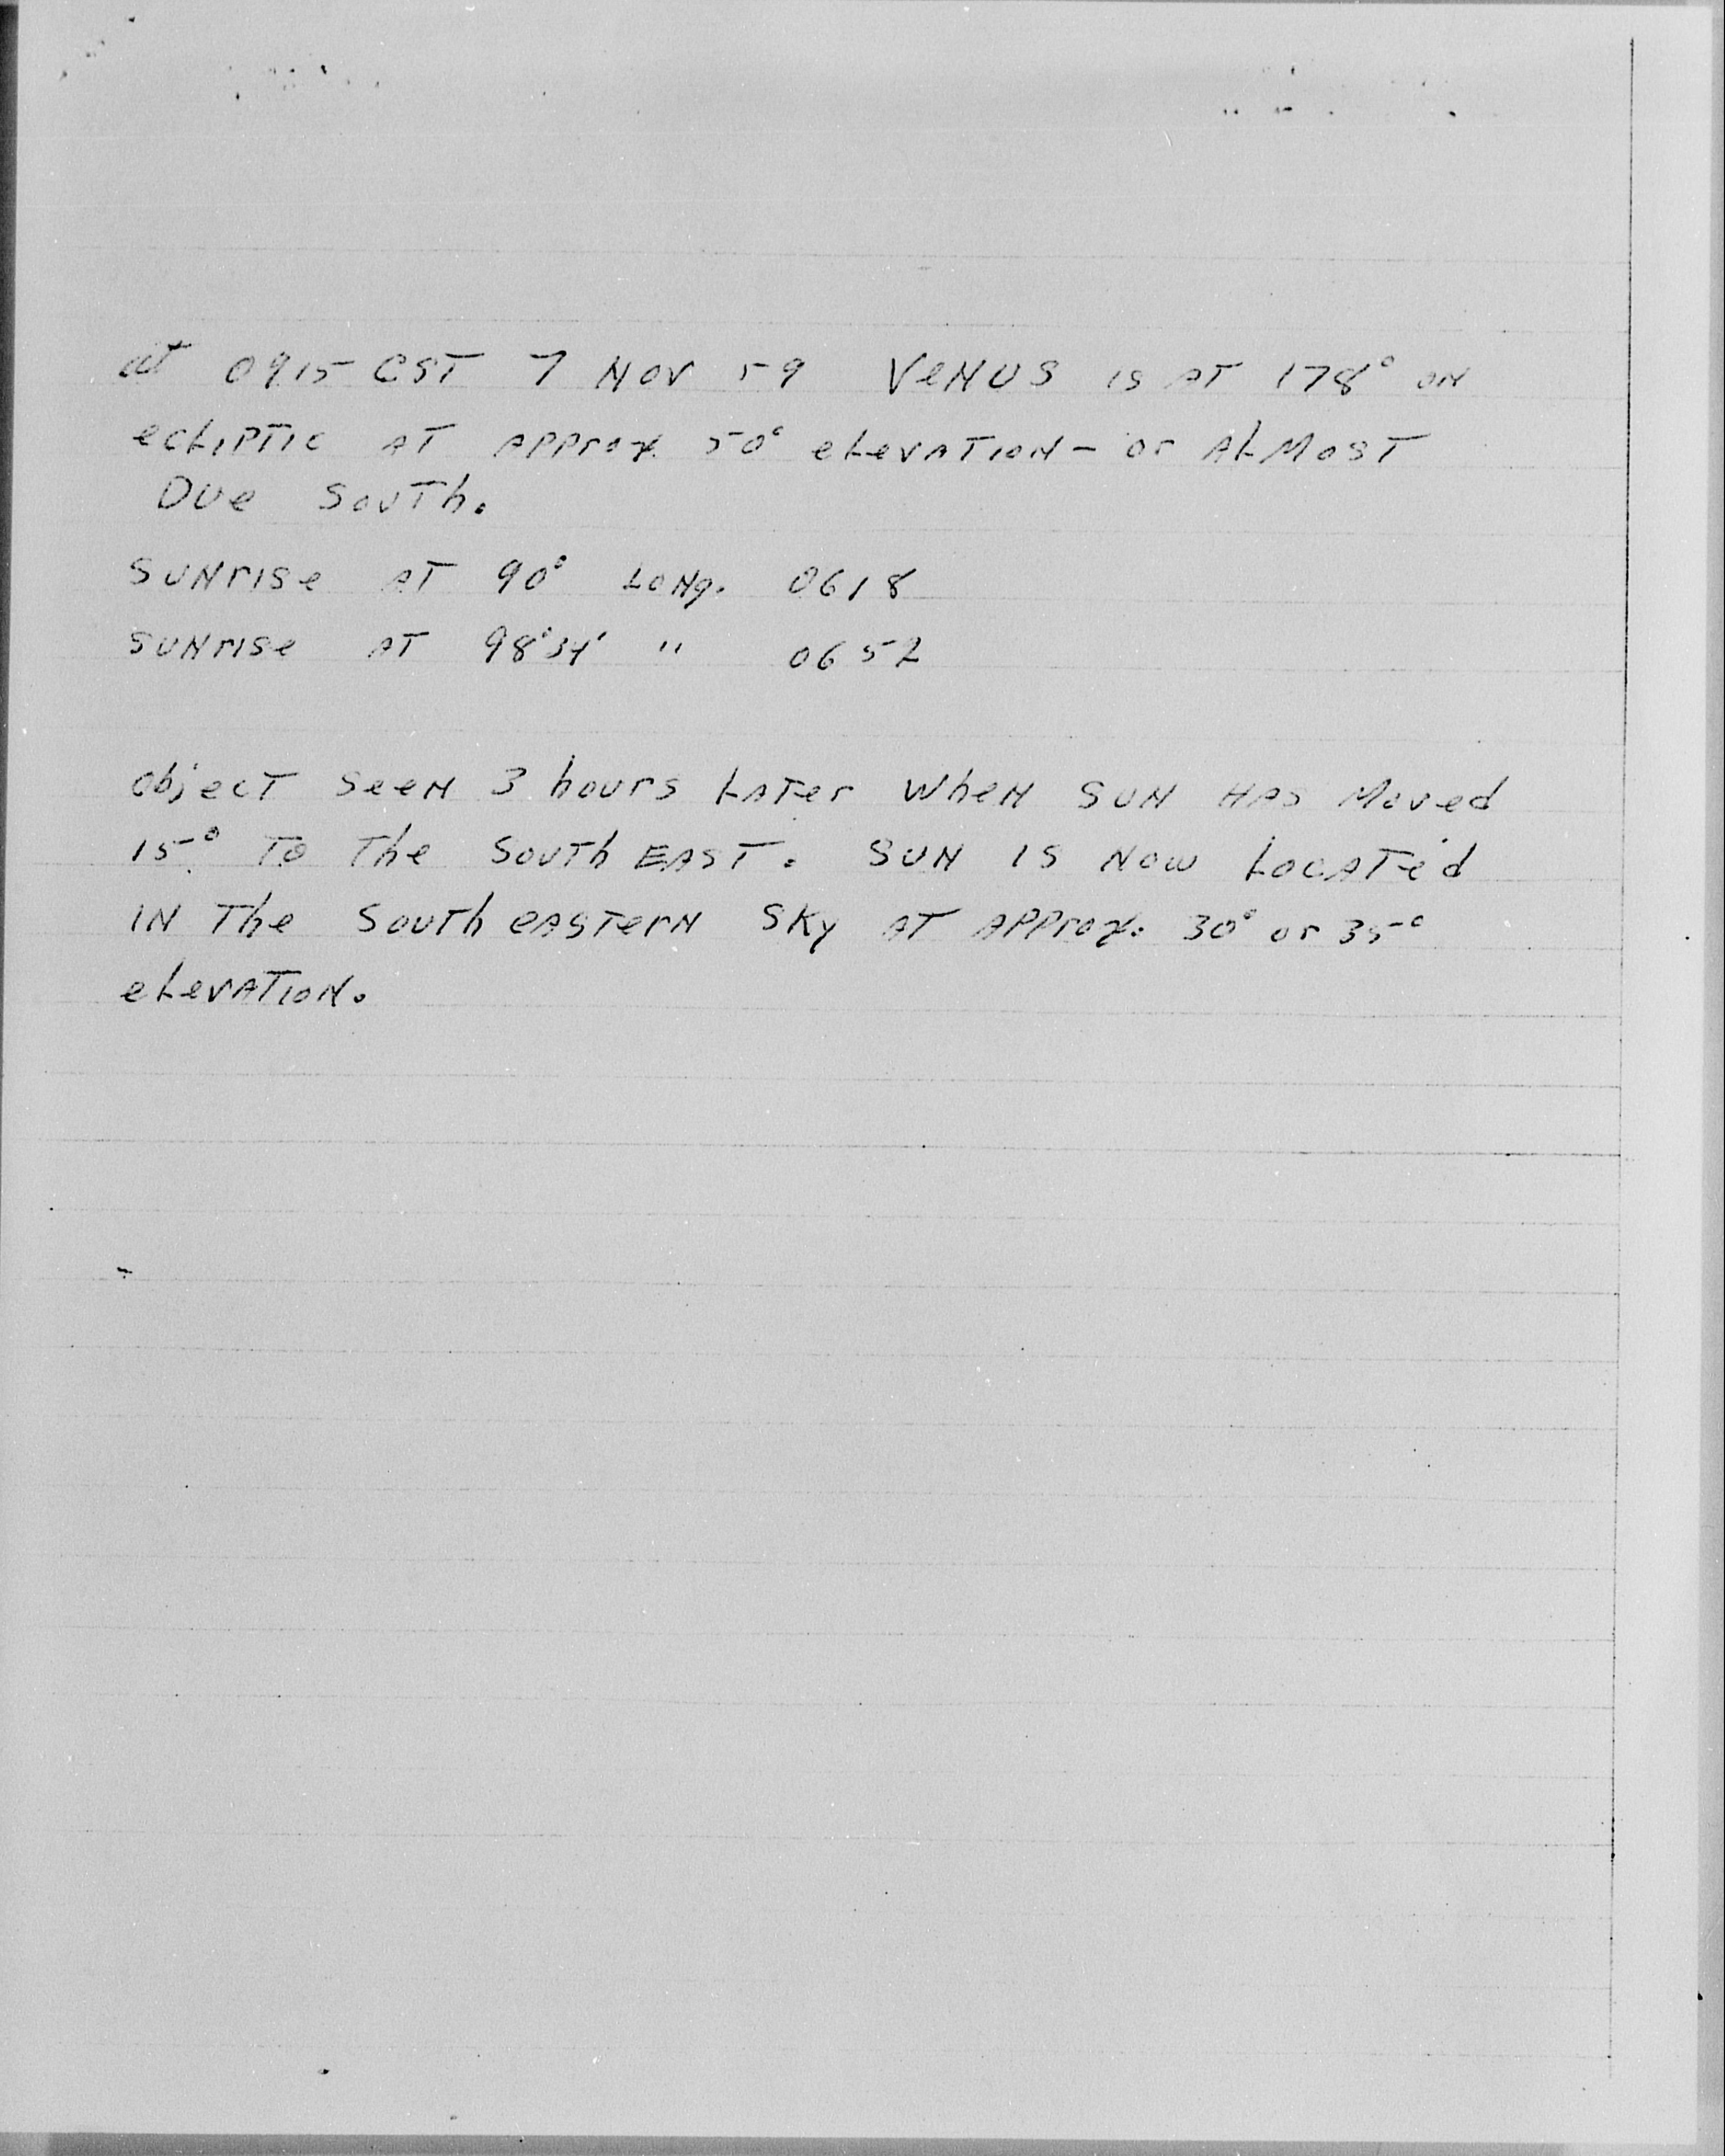 at 0915 CST 7 NOV 59 VeNUS is AT 178° ON
ecLiPTic AT APProx. 50° eLevATION - or ALMOST
Due SouTh.
SUNrise AT 90° LONg. 0618
SUNrise AT 98°34' " 0652
object seeN 3 hours LATer wheN SUN HAS Moved
15° To The South EAST. SUN IS Now LOCATed
IN The South eASTerN SKy AT APProx. 30° or 35°
eLevATION.